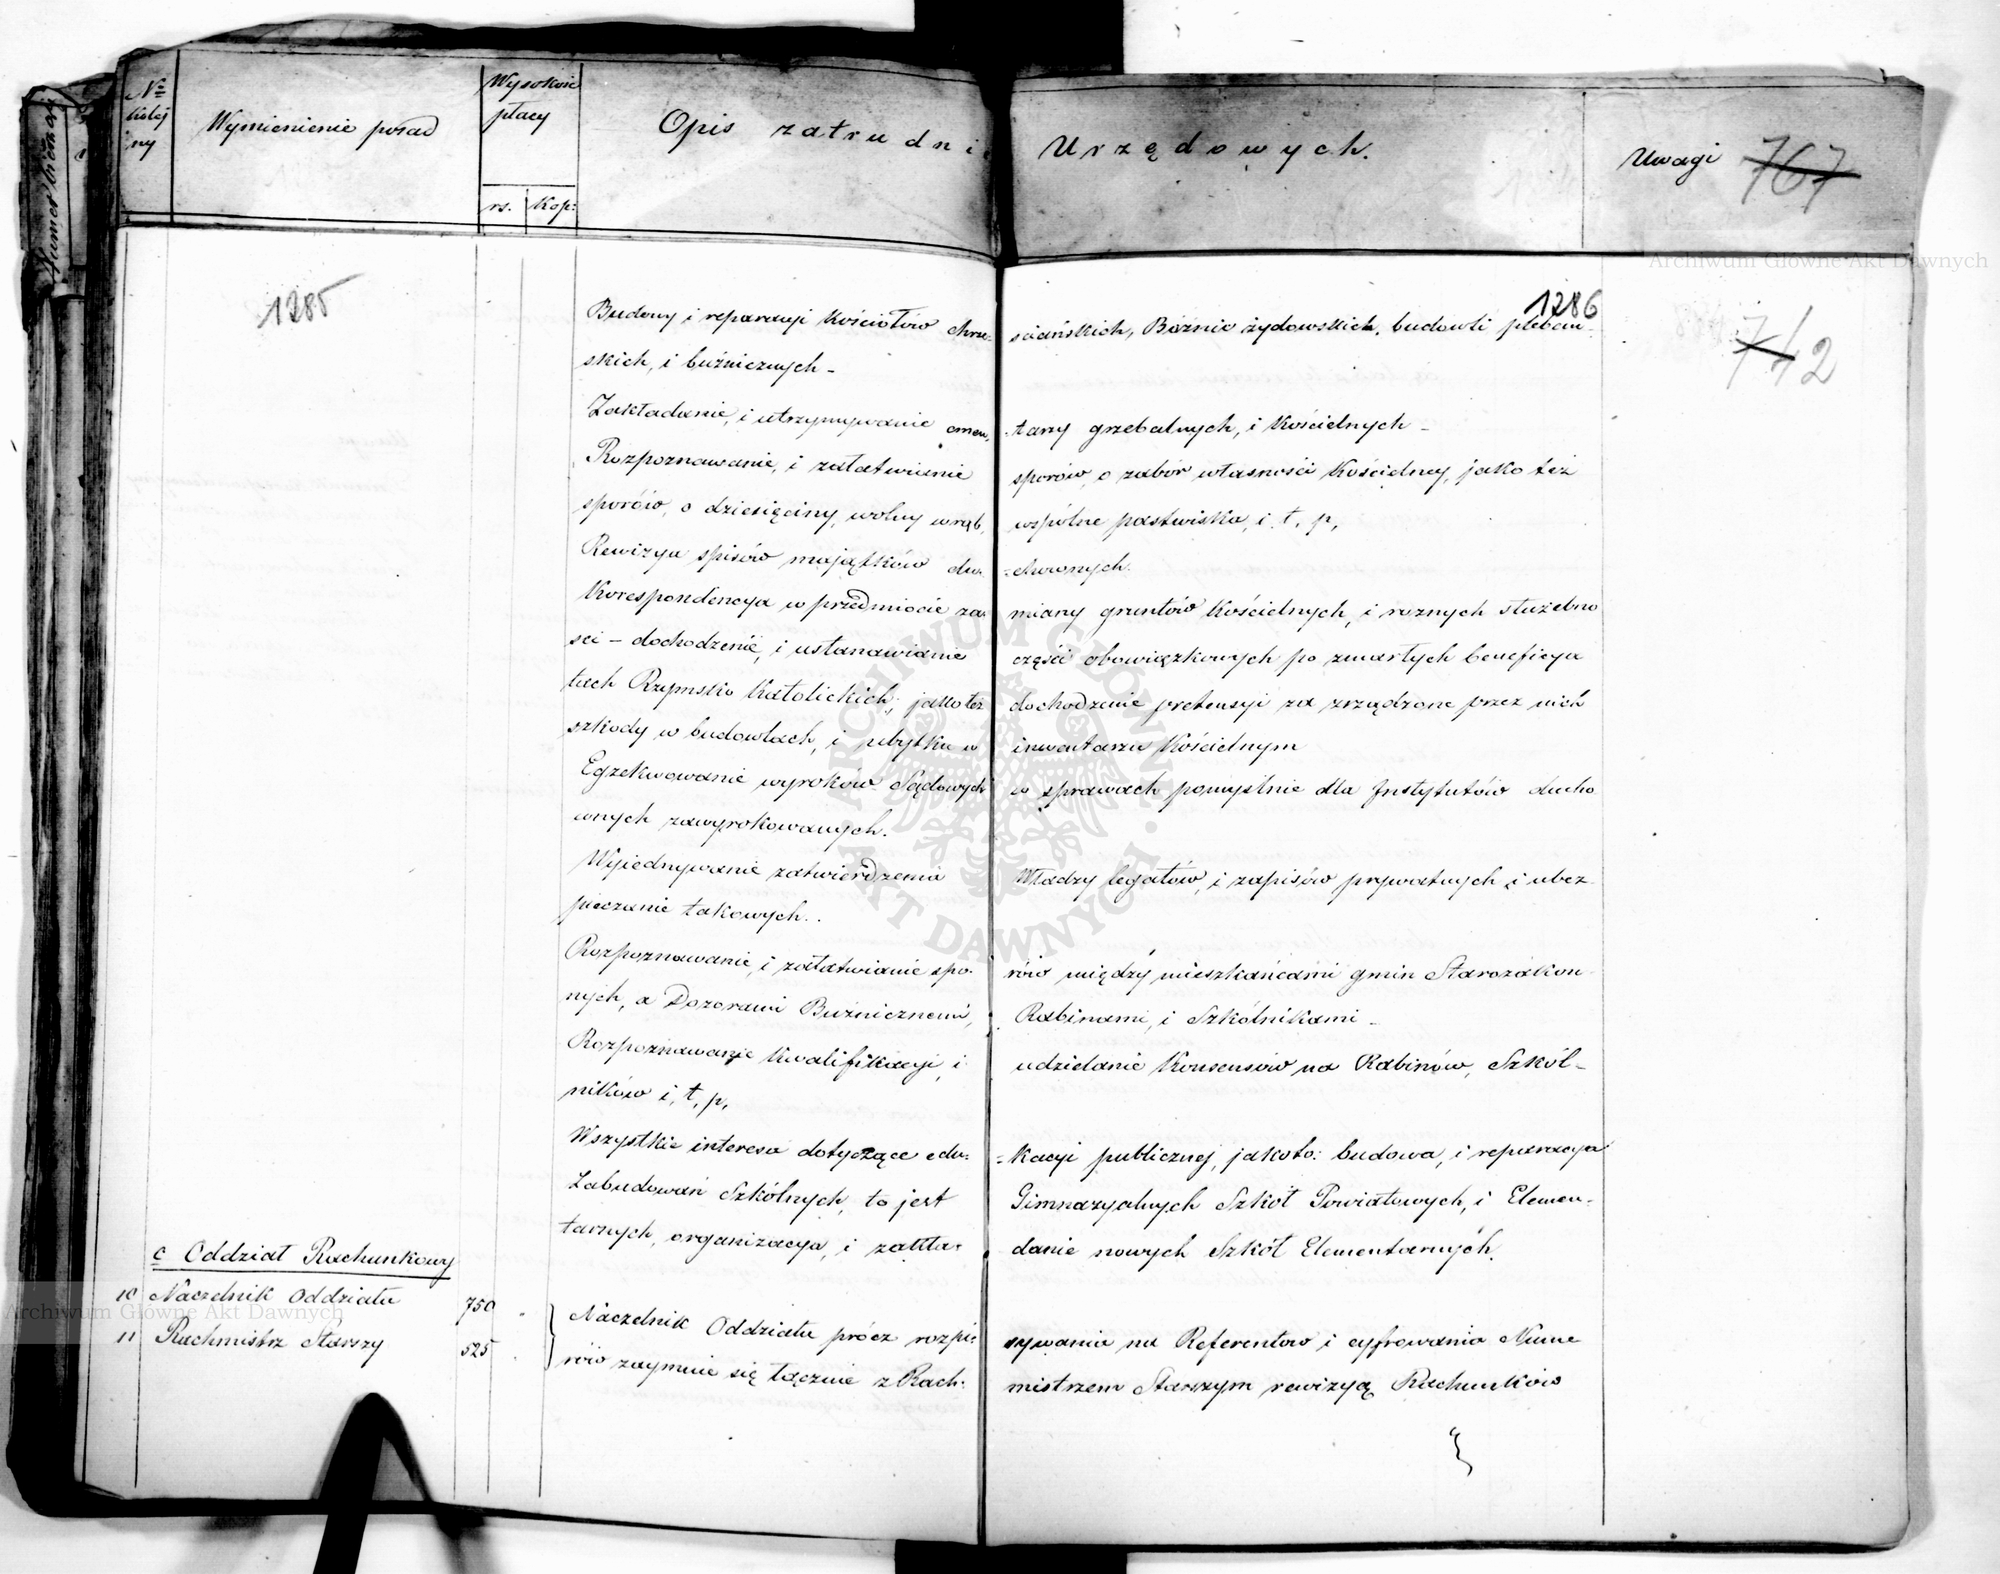 Nº kolejny
Wymienienie posad
Wysokość płacy
rs. Kop:
Opis zatrudnień Urzędowych.
Uwagi
767
1285
1286
742
Budowy i reparacyi Kościołów chrze-
ściańskich, Bóżnic żydowskich, budowli plebań-
skich, i bóżnicznych –
Zakładanie, i utrzymywanie cmen-
tarzy grzebalnych, i Kościelnych –
Rozpoznawanie, i załatwianie
sporów, o zabór własności Kościelney, jako też
sporów, o dziesięciny, wolny wrąb,
wspólne pastwiska, i. t. p.
Rewizya spisów majątków du-
chownych.
Korespondencya w przedmiocie za-
miany gruntów Kościelnych, i roznych służebno
sci – dochodzenie, i ustanawianie
części obowiązkowych po zmarłych beneficya
tach Rzymsko Katolickich, jako też
dochodzenie pretensyi za zrządzone przez nich
szkody w budowlach, i ubytku w
inwentarzu Kościelnym
Egzekwowanie wyroków Sądowych
w sprawach pomyślnie dla Instytutów ducho
wnych zawyrokowanych.
Wyjednywanie zatwierdzenia
Władzy legatów, i zapisów prywatnych i ubez-
pieczanie takowych.
Rozpoznawanie, i załatwianie spo-
rów między mieszkańcami gmin Starozakon-
nych, a Dozorami Bużnicznemi,
Rabinami, i Szkólnikami –
Rozpoznawanie Kwalifikacyi, i
udzielanie Konsensów na Rabinów, Szkól-
ników i, t, p,
Wszystkie interesa dotyczące edu-
kacyi publicznej, jakoto: budowa, i reparacya
Zabudowań Szkólnych, to jest
Gimnazyalnych Szkół Powiatowych, i Elemen-
tarnych, organizacya, i zakła-
danie nowych Szkół Elementarnych.
c Oddział Rachunkowy
10 Naczelnik Oddziału 750 "
11 Rachmistrz Starszy 525 "
Naczelnik Oddziału prócz rozpi-
sywania na Referentow i cyfrowania Nume
rów zaymuie się łącznie z Rach-
mistrzem Starszym rewizyą Rachunków
Archiwum Główne Akt Dawnych
Archiwum Główne Akt Dawnych
ARCHIWUM GŁÓWNE AKT DAWNYCH